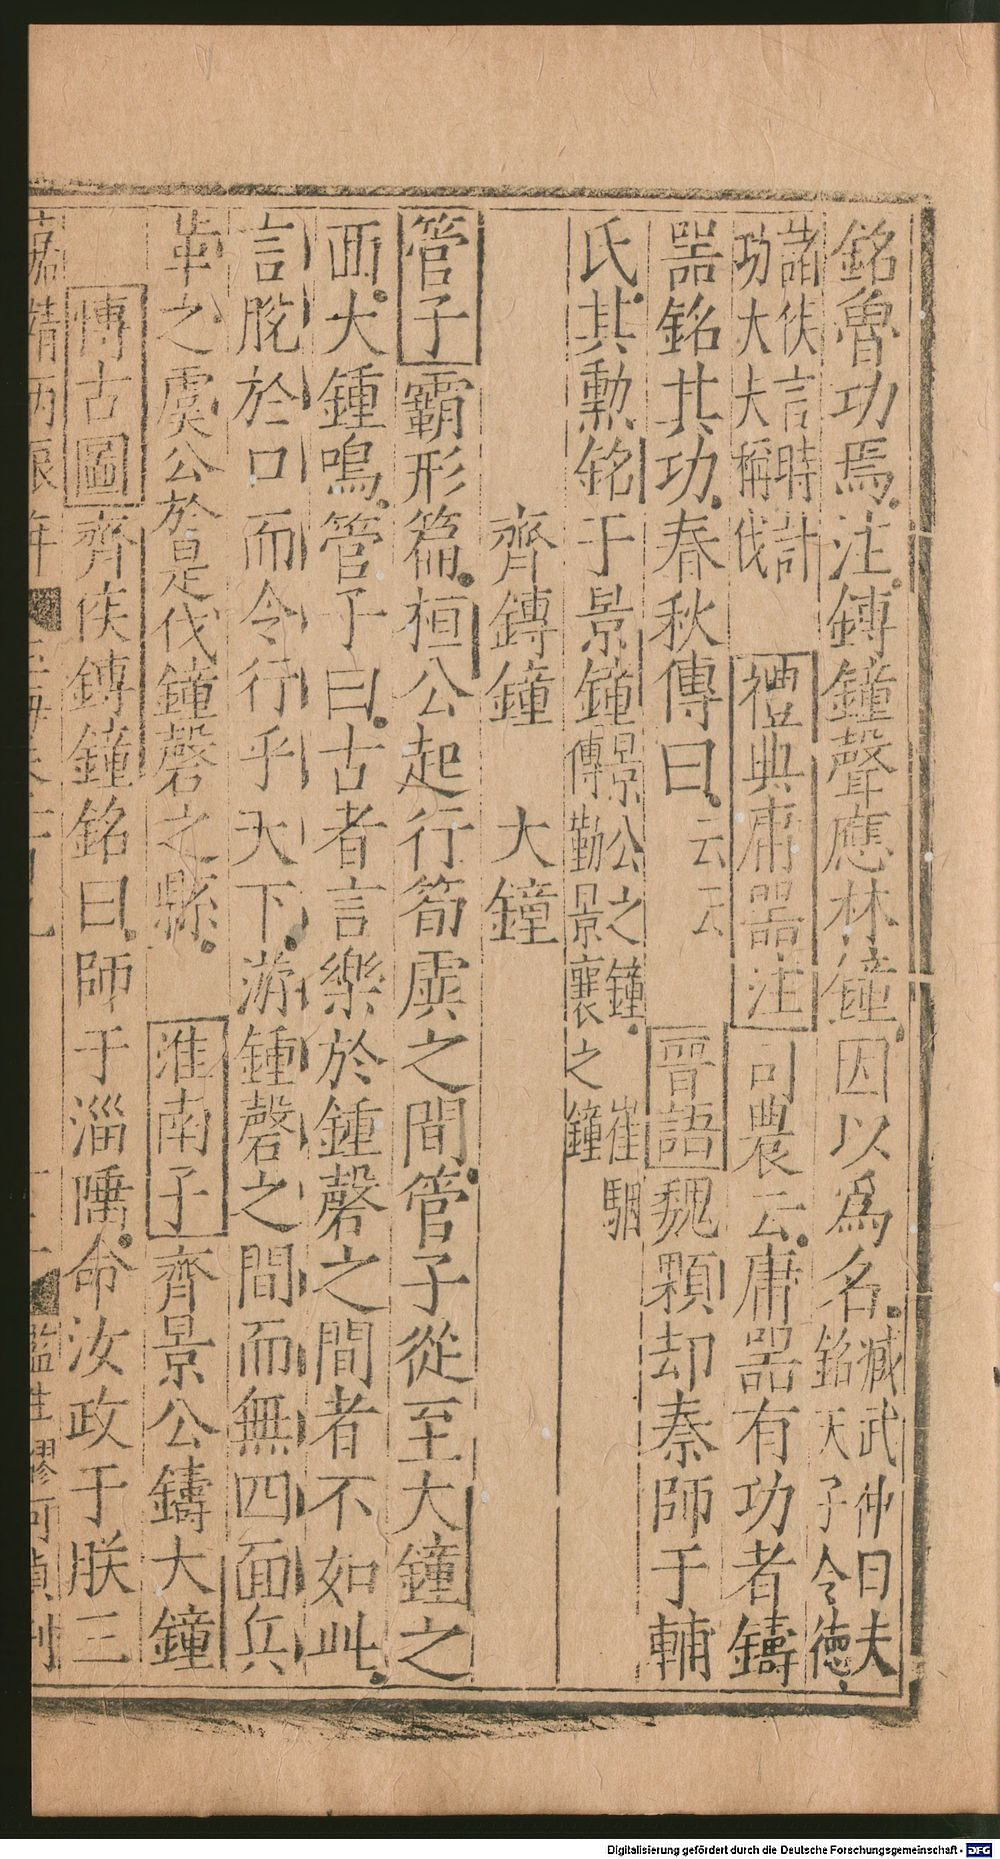 銘魯功焉注鏄鐘聲應林鐘因以爲名臧武仲曰夫銘天子令德
諸侯言時計功大夫稱伐 禮典庸器注司農云庸器有功者鑄
器銘其功春秋傳曰云云 晋語魏顆却秦師于輔
氏其勲銘于景鐘景公之鐘崔駰傳勤景襄之鐘
齊鏄鐘 大鐘
管子霸形篇桓公起行筍虡之間管子從至大鐘之
西大鍾鳴管子曰古者言樂於鍾磬之間者不如此
言脫於口而令行乎天下游鍾磬之間而無四面兵
革之虞公於是伐鐘磬之縣 淮南子齊景公鑄大鐘
博古圖齊侯鏄鐘銘曰師于淄陲命汝政于朕三
嘉靖丙辰年 監生繆可貞刊
Digitalisierung gefördert durch die Deutsche Forschungsgemeinschaft - DFG